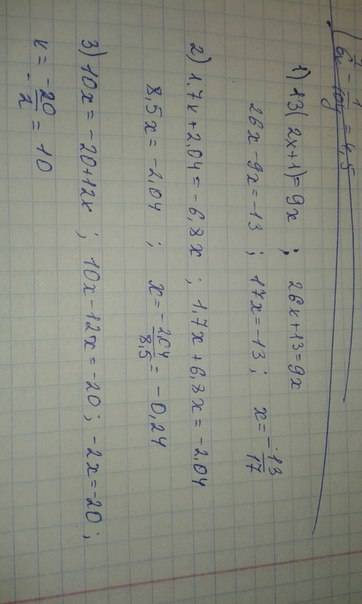 1) 13(2x+1)=9x ; 26x+13=9x
26x-9x=-13 ; 17x=-13 ; x=-13/17
2) 1,7x+2,04=-6,8x ; 1,7x+6,8x=-2,04
8,5x=-2,04 ; x=-2,04/8,5=-0,24
3) 10x=-20+12x ; 10x-12x=-20 ; -2x=-20 ;
x=-20/-2=10